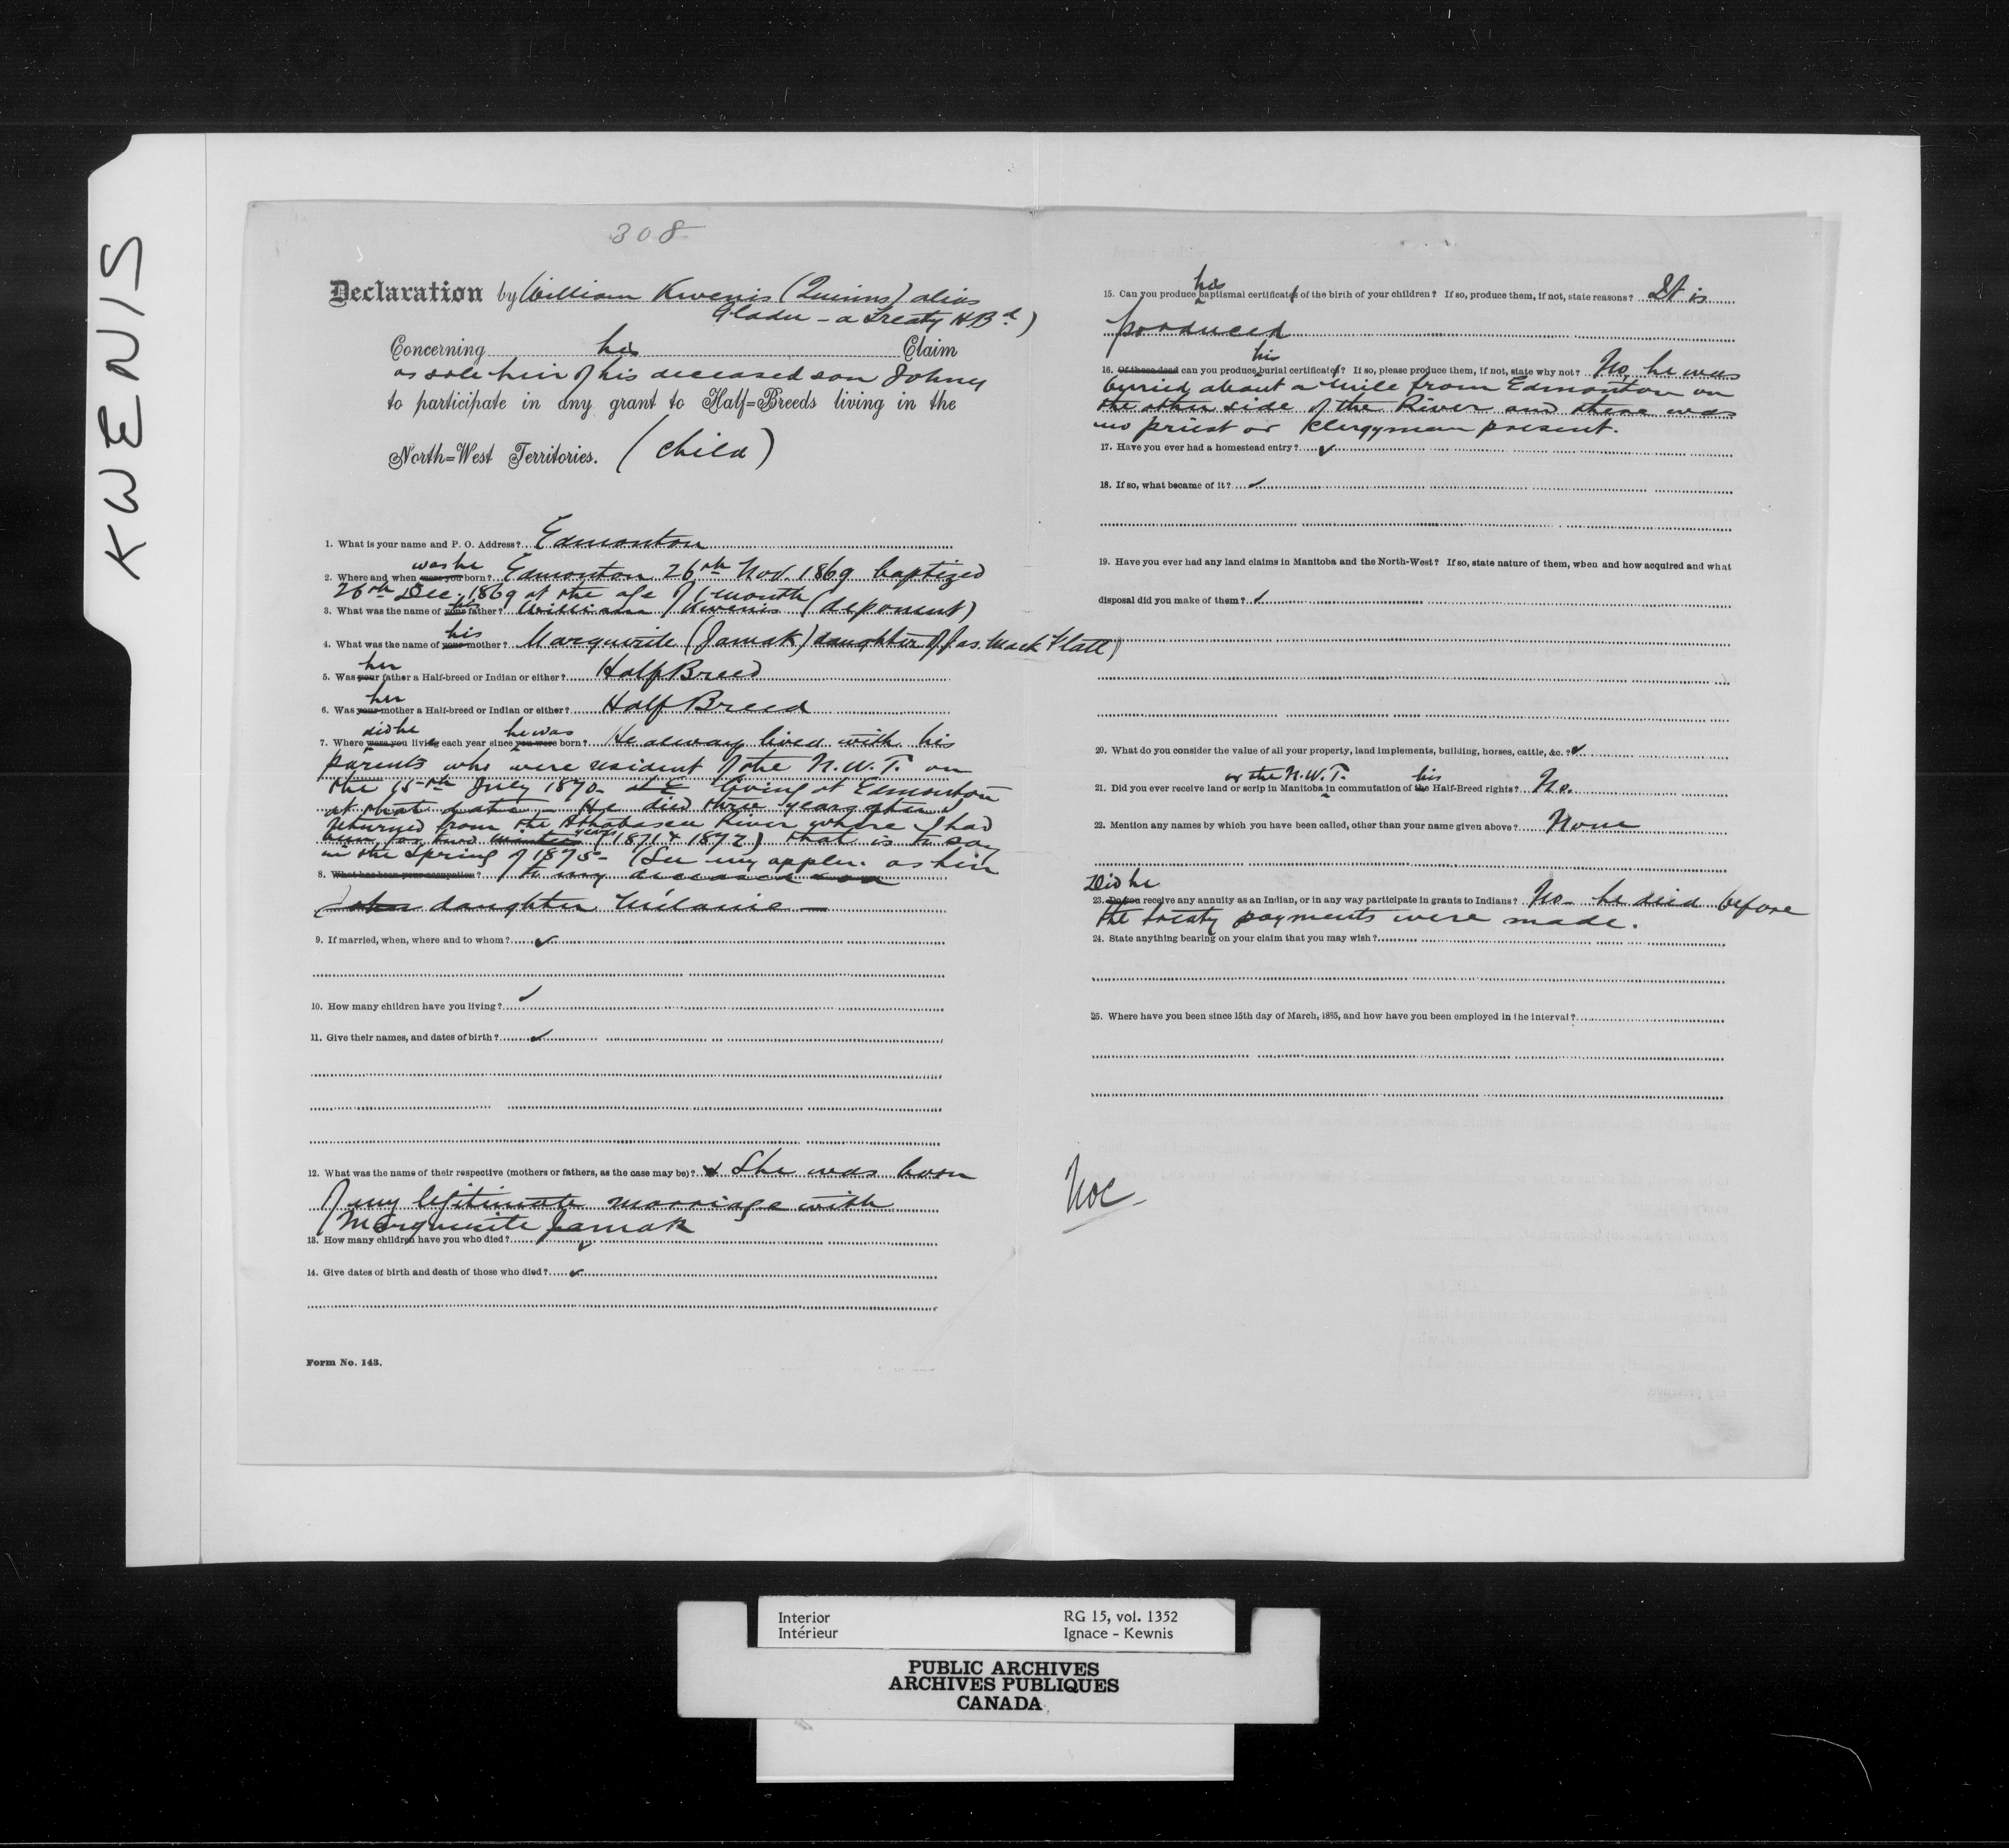 KWENIS
308
Declaration by William Kwenis (Quinns) alias
Gladu - a Treaty H Bd)
Concerning his Claim
as sole heir of his deceased son Johny
to participate in any grant to Half=Breeds living in the
North=West Territories. (Child)
1. What is your name and P. O. Address? Edmonton
was he
2. Where and when were you born? Edmonton 26th Nov. 1869 baptized
26th Dec. 1869 at the age of 1 month
his
3. What was the name of your father? William Kwenis (deponent)
his
4. What was the name of your mother? Marguerite (Jamak) daughter of Jas. Mack Flatt)
her
5. Was your father a Half-breed or Indian or either? Half Breed
her
6. Was your mother a Half-breed or Indian or either? Half Breed
did he he was
7. Where were you living each year since you were born? He alway lived with his
parents who were resident of the N.W.T. on
the 15th July 1870 - at E living at Edmonton
at that date - He died three years after I
returned from the Athabasca River where I had
years
been for two winters (1871 & 1872) that is to say
in the Spring of 1875 - (See my applcn. as heir
8. What has been your occupation? to my deceased son
John daughter Mélanie -
9. If married, when, where and to whom? ✓
10. How many children have you living? ✓
11. Give their names, and dates of birth? ✓
12. What was the name of their respective (mothers or fathers, as the case may be)? She was born
of my legitimate marriage with
Marguerite Jamak
13. How many children have you who died? ✓
14. Give dates of birth and death of those who died? ✓
Form No. 143.
his
15. Can you produce baptismal certificates of the birth of your children? If so, produce them, if not, state reasons? It is
produced
his
16. Of these dead can you produce burial certificates? If so, please produce them, if not, state why not? No, he was
burried about a mile from Edmonton on
the other side of the River and there was
no priest or klergyman present.
17. Have you ever had a homestead entry? ✓
18. If so, what became of it? ✓
19. Have you ever had any land claims in Manitoba and the North-West? If so, state nature of them, when and how acquired and what
disposal did you make of them? ✓
20. What do you consider the value of all your property, land implements, building, horses, cattle, &c. ? ✓
or the N.W.T. his
21. Did you ever receive land or scrip in Manitoba in commutation of the Half-Breed rights? No.
22. Mention any names by which you have been called, other than your name given above? None
Did he
23. Do you receive any annuity as an Indian, or in any way participate in grants to Indians? No - he died before
the treaty payments were made.
24. State anything bearing on your claim that you may wish?
25. Where have you been since 15th day of March, 1885, and how have you been employed in the interval?
Interior
Intérieur
RG 15, vol. 1352
Ignace - Kewnis
PUBLIC ARCHIVES
ARCHIVES PUBLIQUES
CANADA